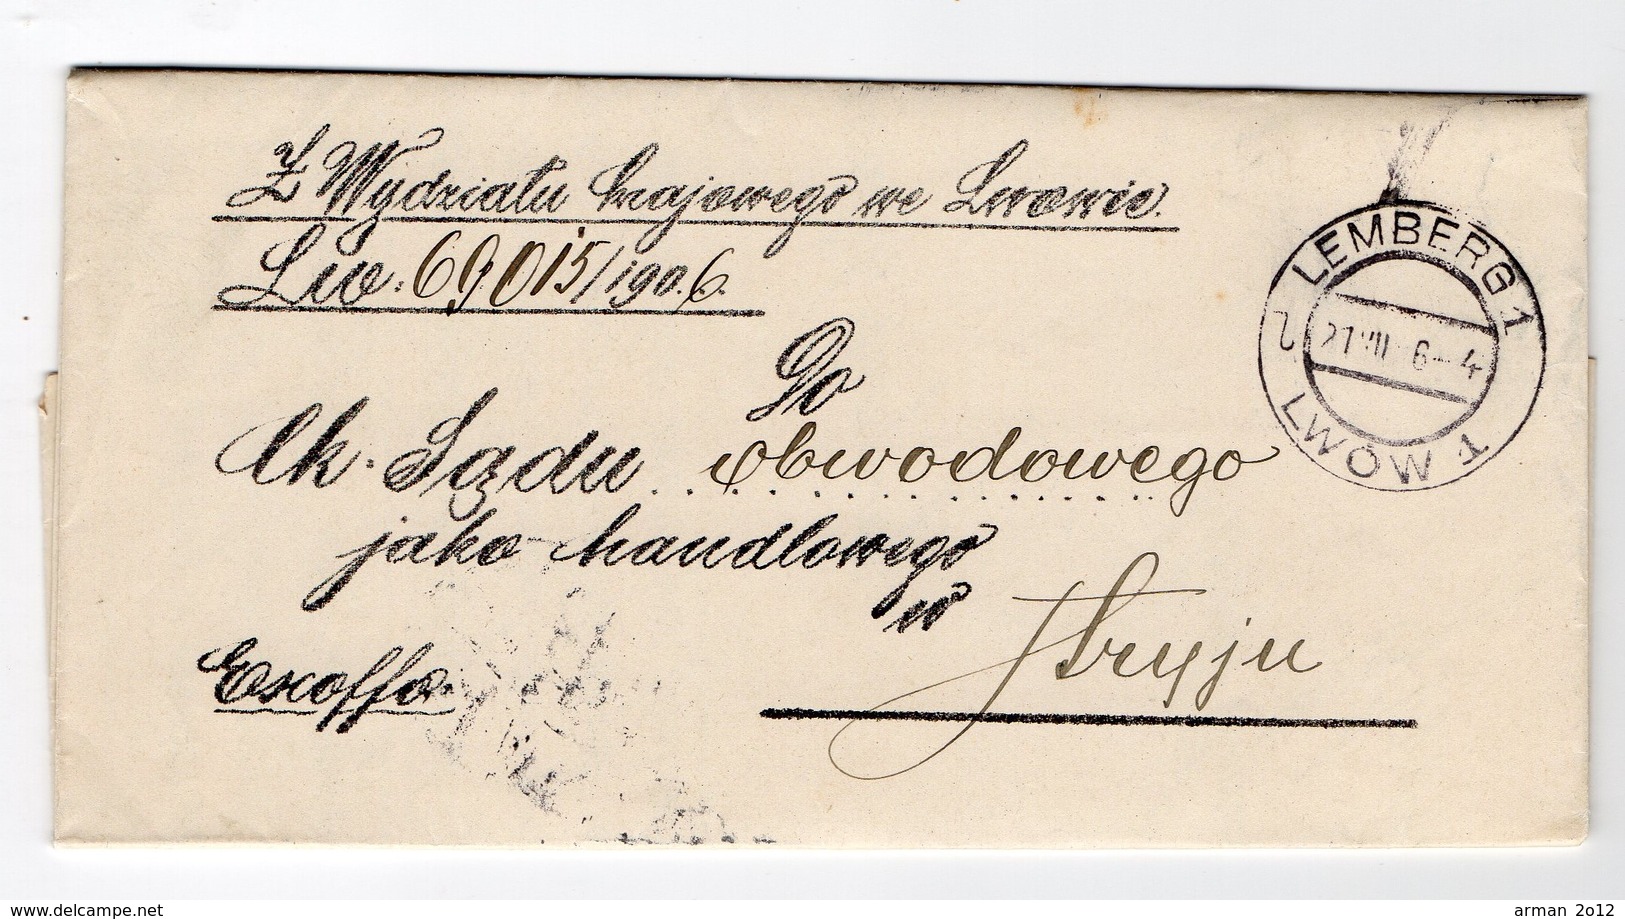 Z Wydziału krajowego we Lwowie.
Lw. 69.015/1906.
LEMBERG 1
21 VII 6-4
LWÓW 1
Do
Ck. Sądu obwodowego
jako handlowego
w
Stryju
Exoffo.
www.delcampe.net
arman 2012